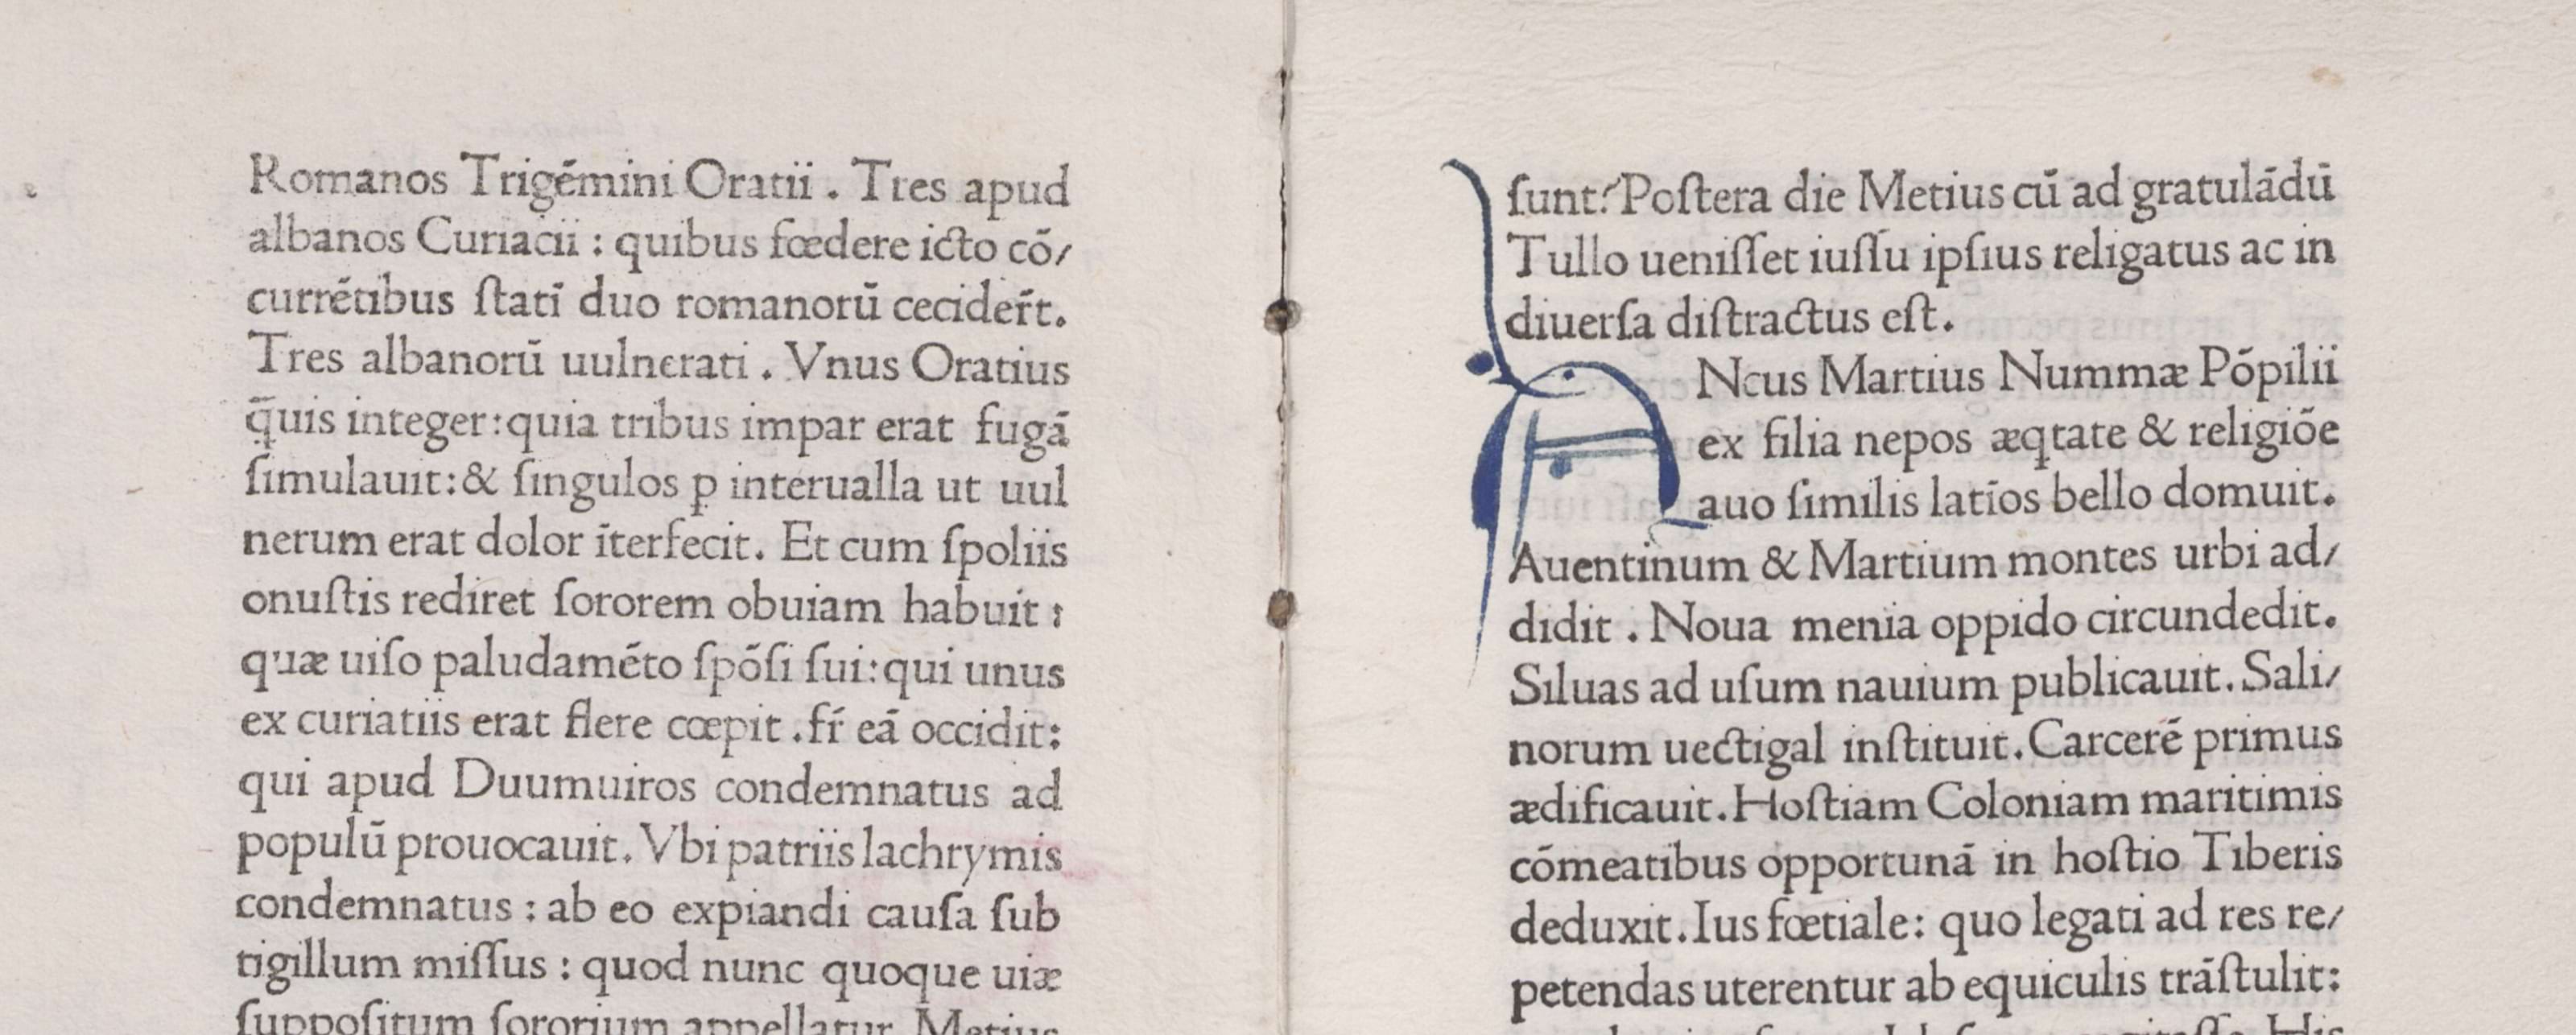 Romanos Trigēmini Oratii . Tres apud
albanos Curiacii : quibus fœdere icto cō/
currētibus ſtatī duo romanorū cecider̄t.
Tres albanorū uulnerati . Vnus Oratius
q̄uis integer:quia tribus impar erat fugā
ſimulauit:& ſingulos ꝑ interualla ut uul
nerum erat dolor īterfecit. Et cum ſpoliis
onuſtis rediret ſororem obuiam habuit :
quæ uiſo paludamēto ſpōſi ſui:qui unus
ex curiatiis erat flere cœpit .fr̄ eā occidit:
qui apud Duumuiros condemnatus ad
populū prouocauit. Vbi patriis lachrymis
condemnatus : ab eo expiandi cauſa ſub
tigillum miſſus : quod nunc quoque uiæ
ſuppoſitum ſororium appellatur. Metius
ſunt? Poſtera die Metius cū ad gratulādū
Tullo ueniſſet iuſſu ipſius religatus ac in
diuerſa diſtractus eſt.
ANcus Martius Nummæ Pōpilii
ex filia nepos æqtate & religiōe
auo ſimilis latīos bello domuit.
Auentinum & Martium montes urbi ad/
didit . Noua menia oppido circundedit.
Siluas ad uſum nauium publicauit. Sali/
norum uectigal inſtituit. Carcerē primus
ædificauit. Hoſtiam Coloniam maritimis
cōmeatibus opportunā in hoſtio Tiberis
deduxit. Ius fœtiale: quo legati ad res re/
petendas uterentur ab equiculis trāſtulit: